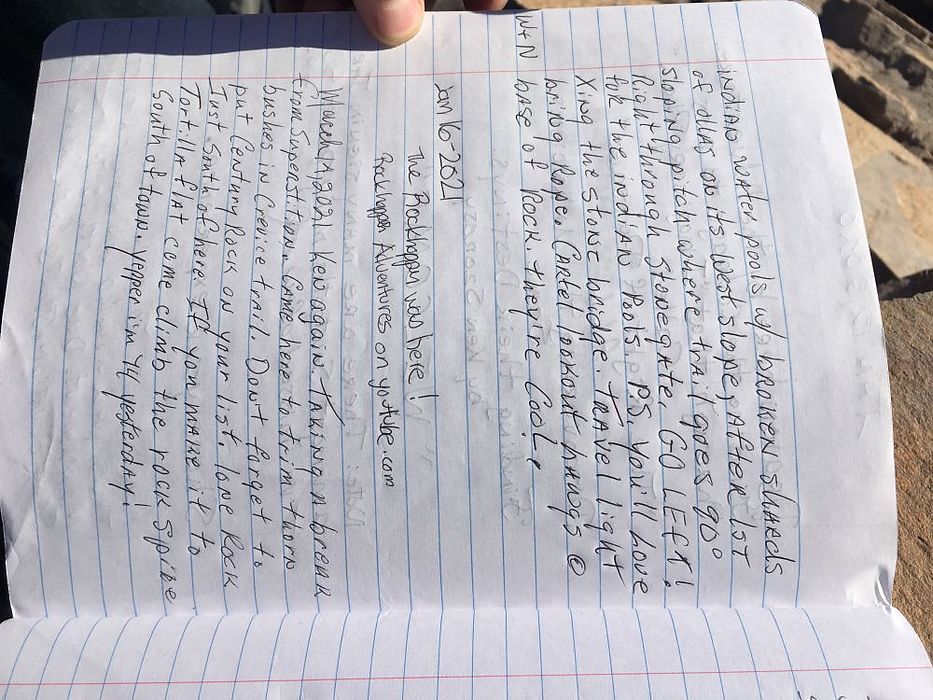 indian water pools w/ broken shards
of ollas on its west slope, After 1st
sloping pitch where trail goes 90°
Right through Stonegate, GO LEFT!
for the indian Pools. P.S. you will love
Xing the stone bridge. Travel light
bring Rope. Cartel lookout hangs @
W+N base of Rock they're Cool.
Jan 16-2021
The Rockhopper was here!
Rockhopper Adventures on youtube.com
March 1, 2021 Ken again. Taking a break
from Superstition. Came here to trim thorn
bushes in Crevice trail. Dont forget to
put Century Rock on your list. lone Rock
Just South of here. IF you make it to
Tortilla flat come climb the rock Spike
South of town. yeppen im 74 yesterday!